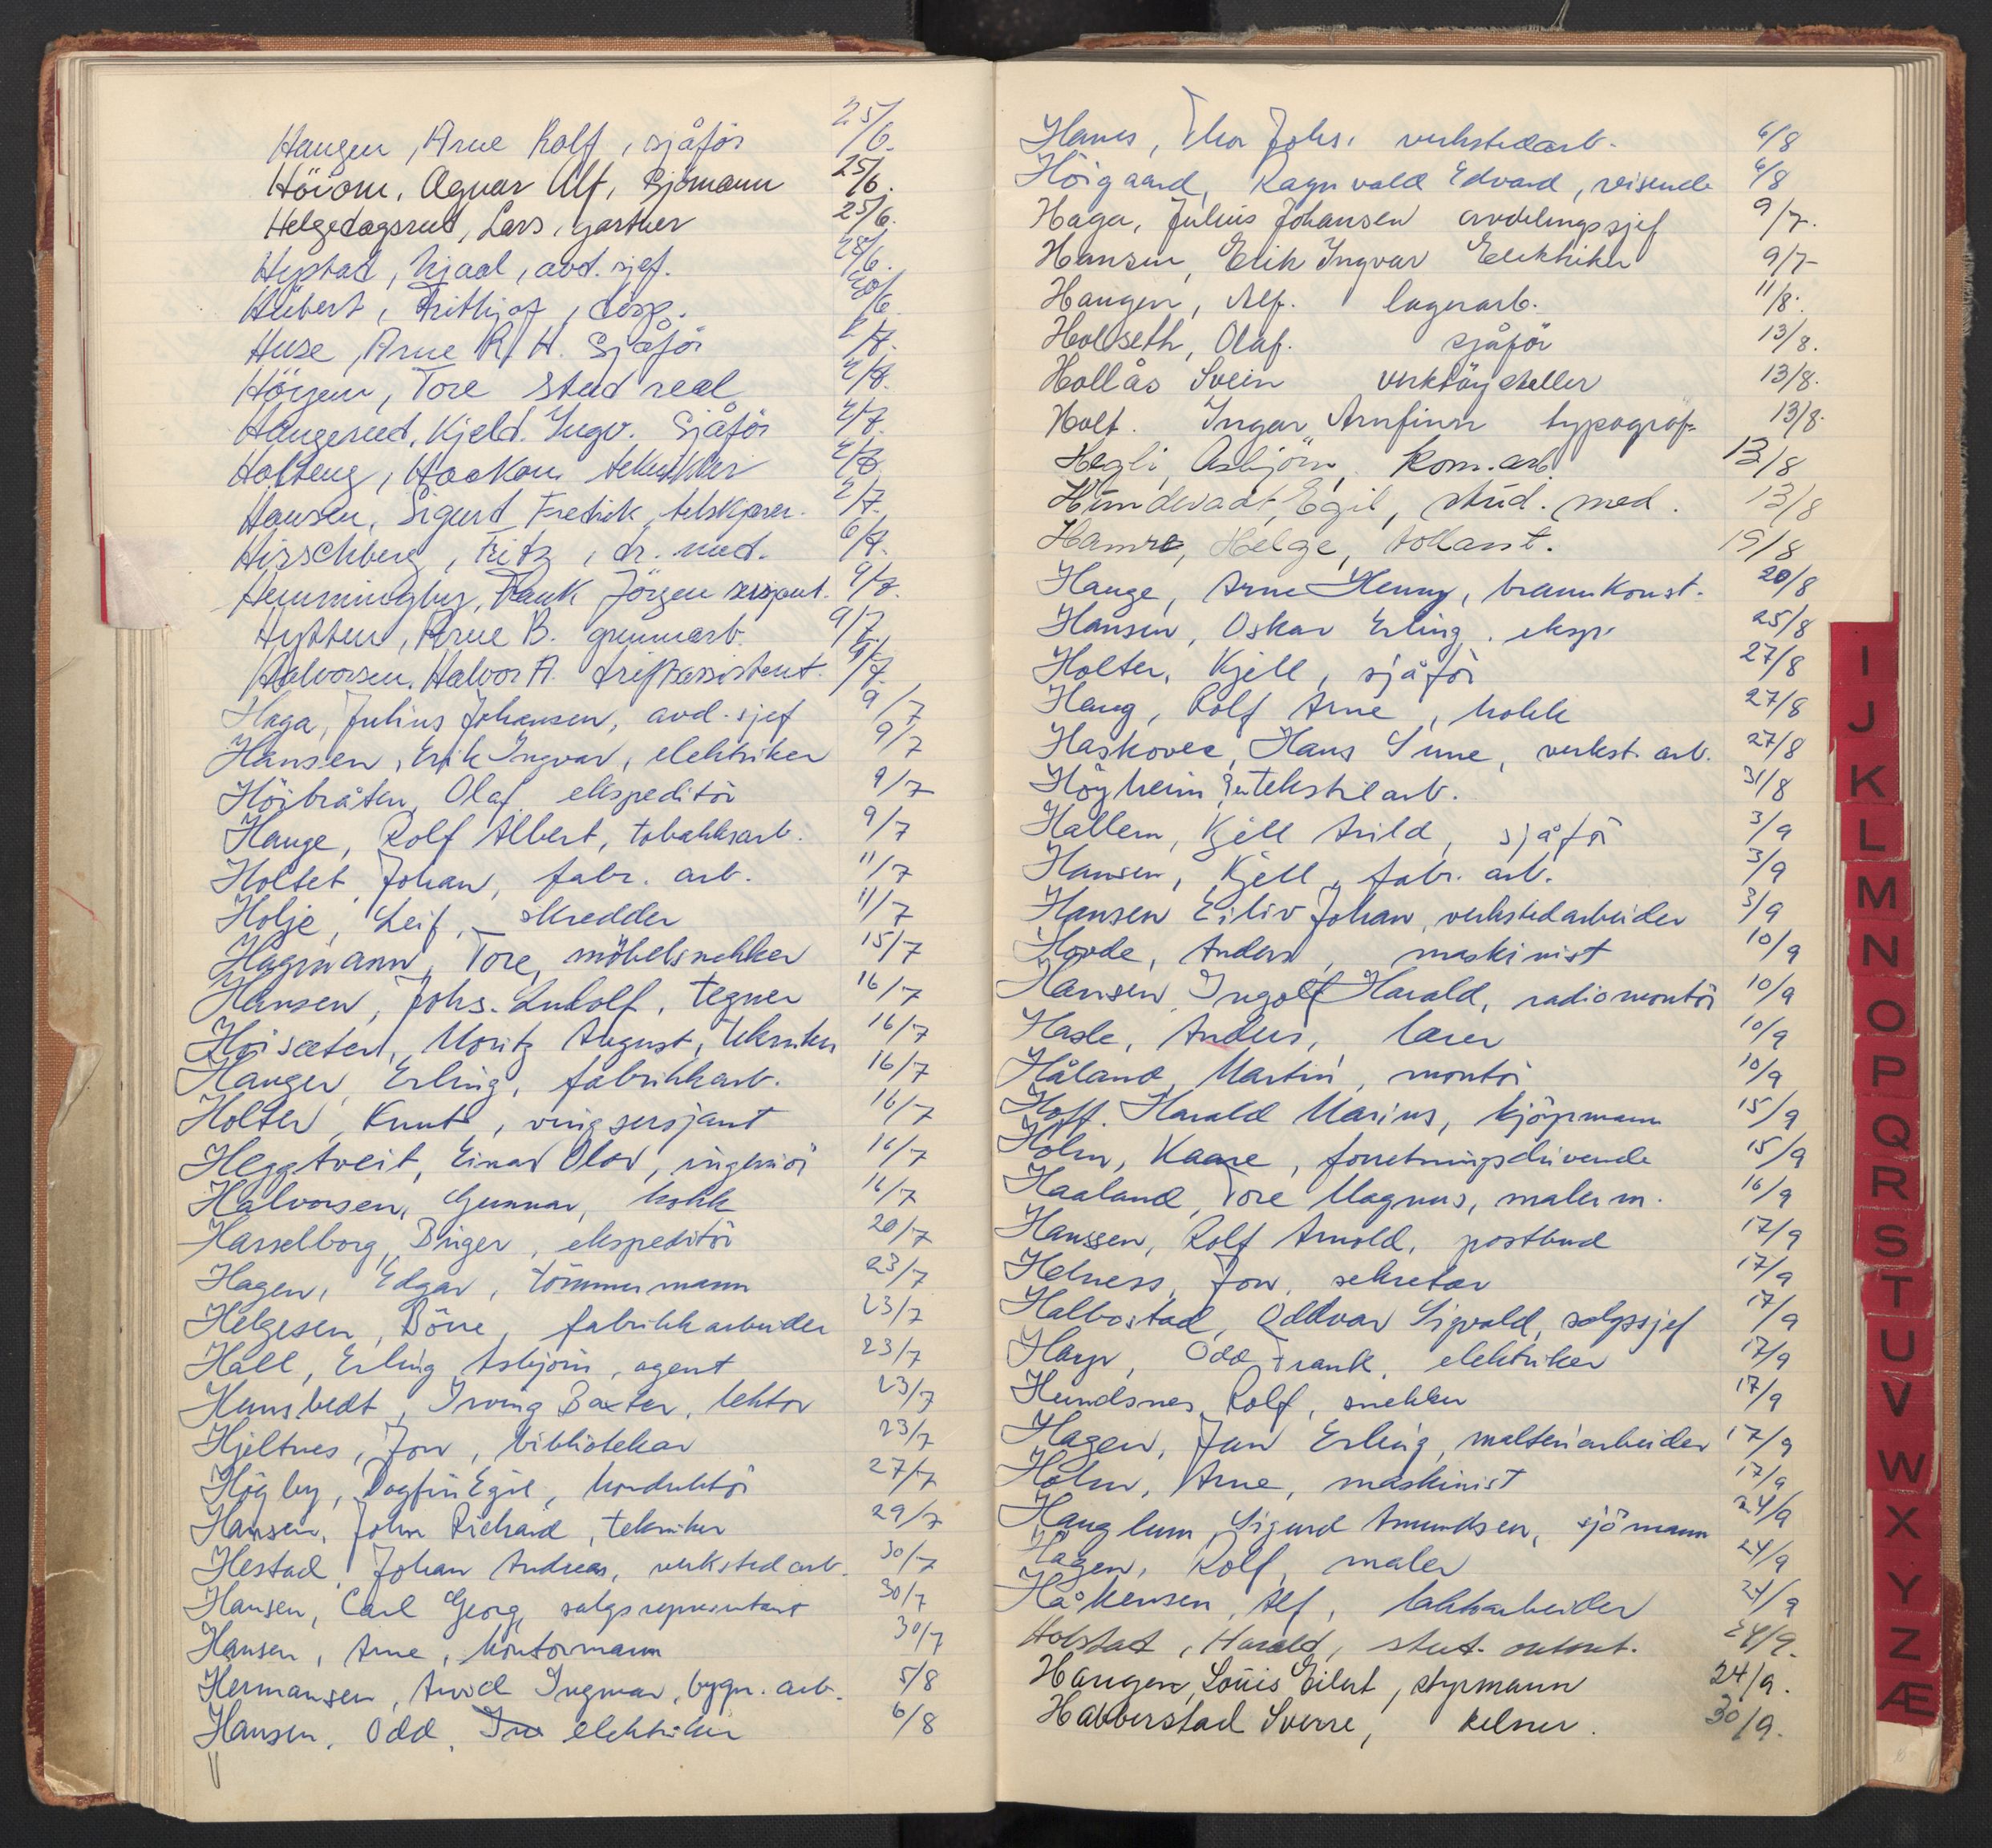 Haugen, Arne Rolf, sjåför 25/6.
Höiom, Agnar Alf, Sjömann 25/6.
Helgedagsrud, Lars, gartner 25/6.
Hystad, Njaal, avd. sjef. 28/6.
Hübert, Frithjof, disp. 30/6
Huse, Arne R. H. Sjåför 2/7.
Höigen, Tore Stud real 2/8.
Haugerud, Kjeld. Ingv. Sjåför 2/7.
Holteng, Haakon tekniker 2/7.
Hansen, Sigurd Fredrik, tilskjærer. 2/7.
Hirschberg, Fritz, dr. med. 6/7.
Hemmingby, Frank Jörgen sersjant. 9/7.
Hytten, Arne B. grunnarb. 9/7
Halvorsen, Halvor A. driftsassistent. 9/7.
Haga, Julius Johansen, avd. sjef 9/7
Hansen, Erik Ingvar, elektriker 9/7
Höibråten, Olaf, ekspeditör 9/7
Hauge, Rolf Albert, tobakksarb. 9/7
Holtet, Johan, fabr. arb. 11/7
Holje, Leif, skredder 11/7
Hagmann, Tore, möbelsnekker 15/7
Hansen, Johs. Ludolf, tegner 16/7
Höisæter, Moritz August, tekniker 16/7
Hauger, Erling, fabrikkarb. 16/7
Holter, Knut, vingsersjant 16/7
Heggtveit, Einar Olav, ingeniör 16/7
Halvorsen, Gunnar, kokk 16/7
Hasselborg, Birger, ekspeditör 20/7
Hagen, Edgar, tömmermann 23/7
Helgesen, Börre, fabrikkarbeider 23/7
Hall, Erling Asbjörn, agent 23/7
Hunsbedt, Irving Baxter, lektor 23/7
Hjeltnes, Jon, bibliotekar 23/7
Högby, Dagfin Egil, konduktör 27/7
Hansen, John Richard, tekniker 29/7
Hestad, Johan Andreas, verksted arb. 30/7
Hansen, Carl Georg, salgsrepresentant 30/7
Hansen, Arne, kontormann 30/7
Hermansen, Arvid Ingmar, bygn. arb. 5/8
Hansen, Odd, elektriker 6/8
Hanes, Thor Johs. verkstedarb. 6/8
Höigaard, Ragnvald Edvard, reisende 6/8
Haga, Julius Johansen avdelingssjef 9/7.
Hansen, Erik Ingvar Elektriker 9/7
Haugen, Alf. lagerarb. 11/8.
Holseth, Olaf. sjåför 13/8.
Hollås Svein verktöysteller 13/8.
Holt. Ingar Arnfinn typograf. 13/8.
Hegli, Asbjörn, kom. arb. 13/8
Hundevadt, Egil, stud. med. 13/8
Hamre, Helge, tollass't. 19/8
Hauge, Arne Henny, brannkonst. 20/8
Hansen, Oskar Erling, eksp. 25/8
Holter, Kjell, sjåför 27/8
Haug, Rolf Arne, kokk 27/8
Haskovec, Hans Sune, verkst. arb. 27/8
Höyheim tekstilarb. 31/8
Hallem, Kjell Arild, sjåför 3/9
Hansen, Kjell, fabr. arb. 3/9
Hansen Eiliv Johan, verkstedarbeider 3/9
Hovde, Anders, maskinist 10/9
Hansen, Ingolf Harald, radiomontör 10/9
Hasle, Anders, lærer 10/9
Håland, Martin, montör 10/9
Hoff. Harald Marius, kjöpmann 15/9
Holm, Kaare, forretningsdrivende 15/9
Haaland, Tore Magnus, malerm. 16/9
Hanssen, Rolf Arnold, postbud 17/9
Helness, Jon, sekretær 17/9
Halbostad, Oddvar Sigvald, salgssjef 17/9
Harp, Odd Frank, elektriker 17/9
Hundsnes, Rolf, snekker 17/9
Hagen, Jan Erling, malteriarbeider 17/9
Holm, Arne, maskinist 17/9
Hauglum, Sigurd Amundsen, sjömann 24/9
Hagen, Rolf, maler 24/9
Håkensen, Alf, lakkarbeider 24/9
Holstad, Harald, stud. 24/9.
Haugen, Louis Eilert, styrmann 24/9.
Habberstad Sverre, kelner. 30/9.
I
J
K
L
M
N
O
P
Q
R
S
T
U
V
W
X
Y
Z
Æ